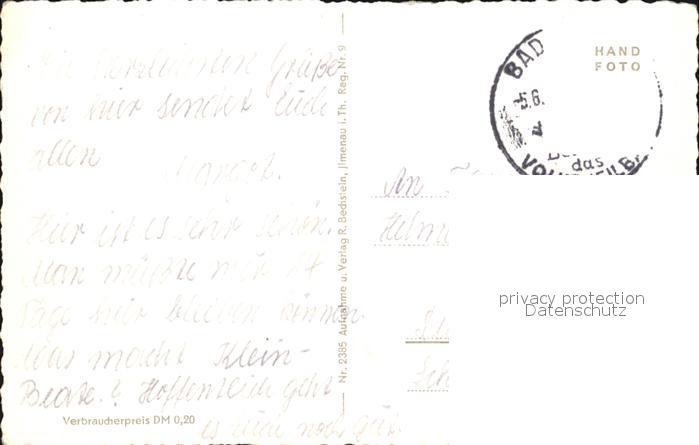 Die herzlichsten Grüße
von hier sendet Euch
allen
Margot.
Hier ist es sehr schön.
Man müßte nur 14
Tage hier bleiben können.
Was macht Klein-
Beate? Hoffentlich geht
es Euch noch gut.
Verbraucherpreis DM 0,20
Nr. 2385 Aufnahme u. Verlag R. Bechstein, Jlmenau i. Th. Reg. Nr. 9
BAD
-5.6.
das
HAND
FOTO
An
privacy protection
Datenschutz